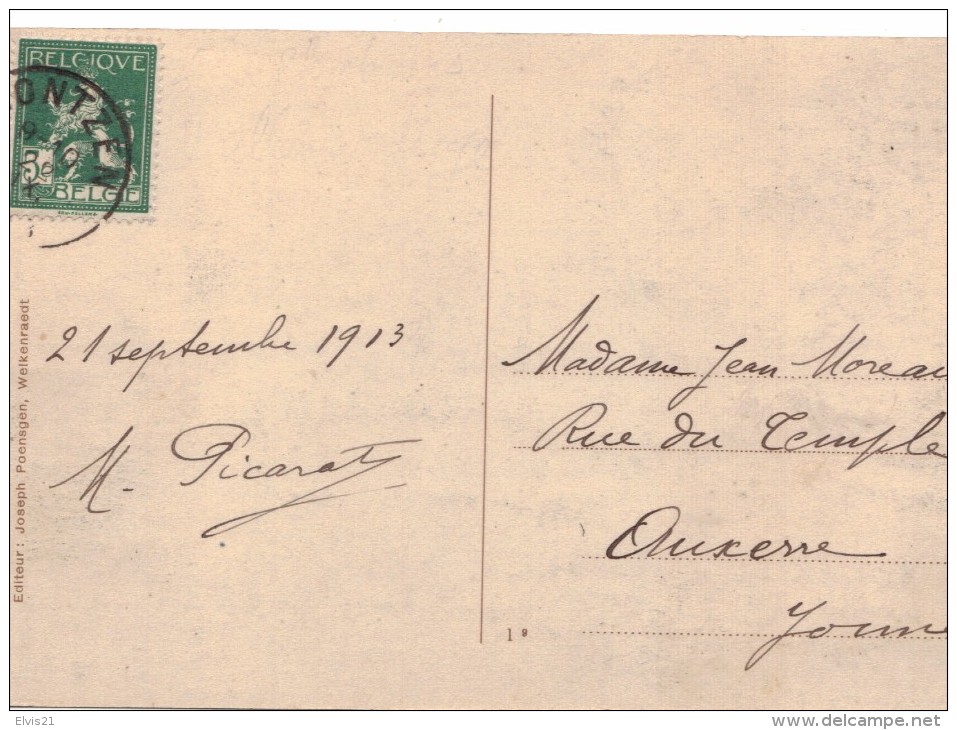 BELGIQVE
ONTZEN
5
BELGIE
Editeur: Joseph Poensgen, Welkenraedt
21 septembre 1913
M. Picarat
Madame Jean Moreau
Rue du Temple
Auxerre
Yonne
19
Elvis21
www.delcampe.net